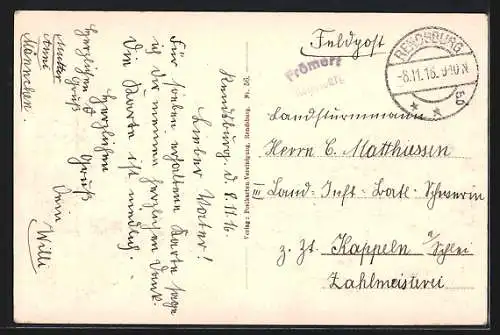 Feldpost
RENDSBURG
-8.11.16. 9-10 N
* *
5b
Frömert
Rendsburg
Landsturmmann
Herrn C. Matthiessen
III Land. Inft. Batl. Schwerin
z. Zt. Kappeln a/Schlei
Zahlmeisterei
Verlag: Postkarten-Vereinigung, Rendsburg. Nr. 50.
Rendsburg. d. 8.11.16.
Lieber Vater!
Für soeben erhaltene Karte sage
ich Dir meinen herzlichen Dank.
Die Karte ist niedlich.
Herzlichen
Gruß
Dein
Willi
Herzlichen Gruß
Mutter
Anni
Männchen.